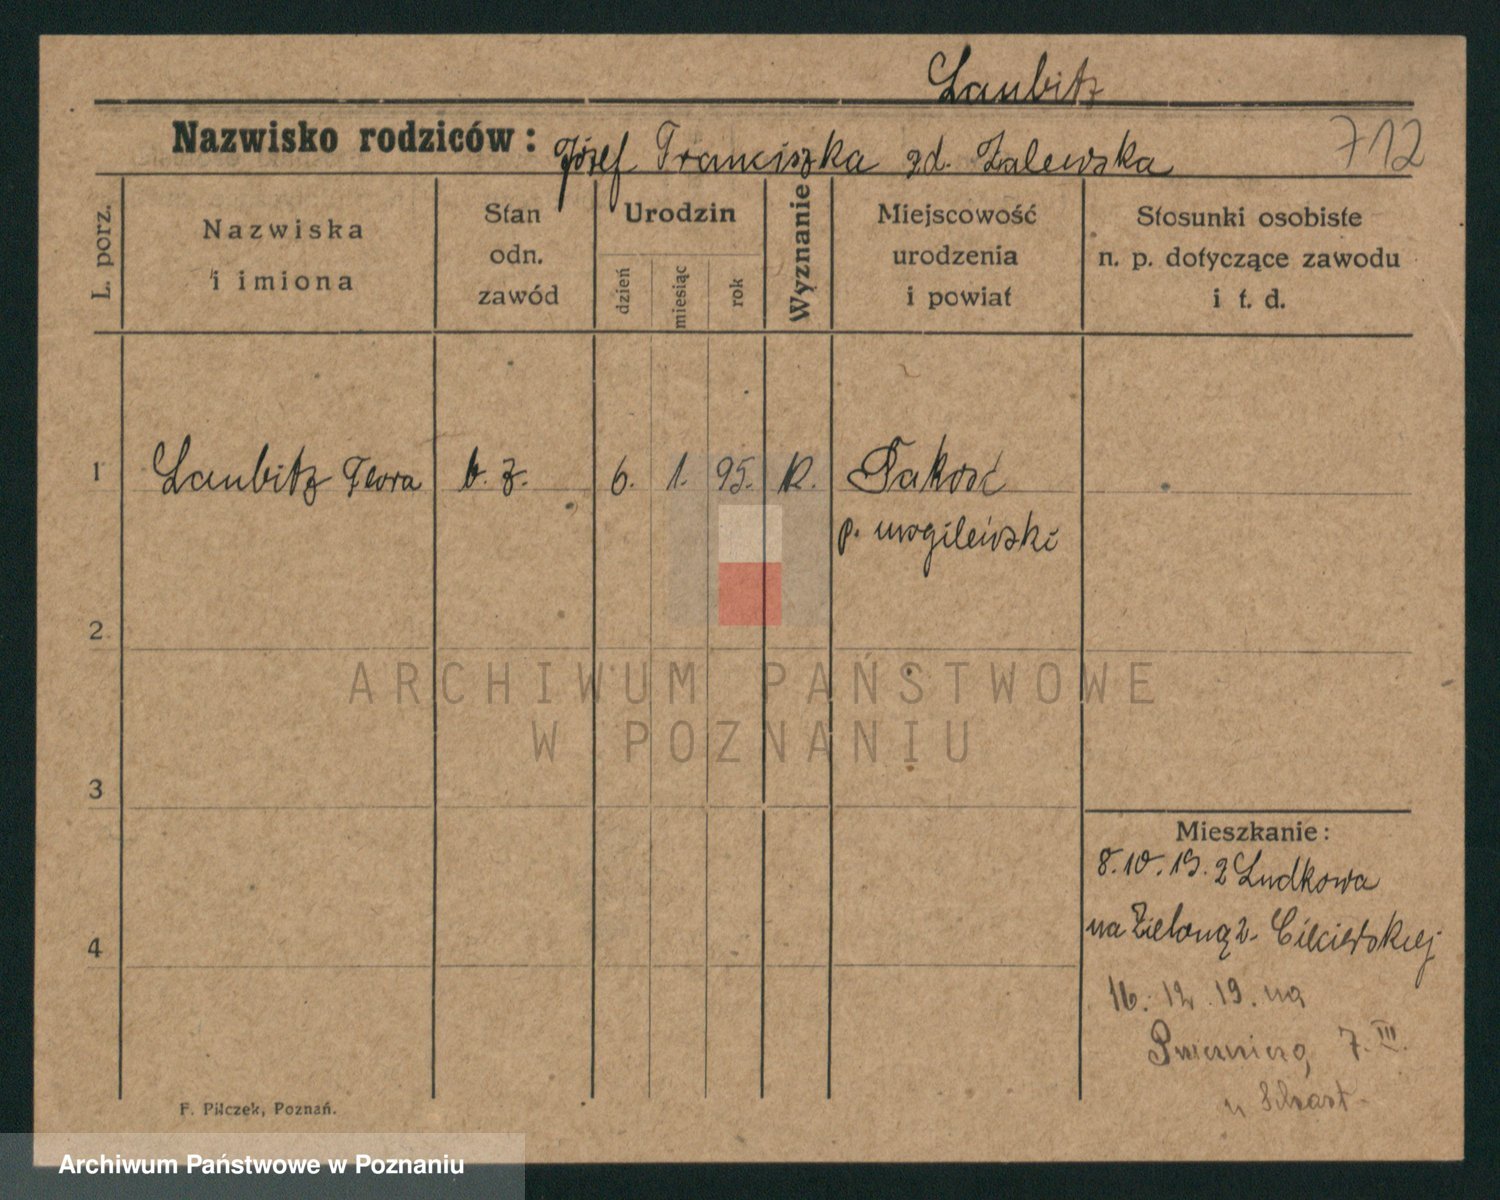 Laubitz
Nazwisko rodziców: Józef Franciszka zd. Zalewska
712
L. porz.
Nazwiska
i imiona
Stan
odn.
zawód
Urodzin
dzień
miesiąc
rok
Wyznanie
Miejscowość
urodzenia
i powiat
Stosunki osobiste
n. p. dotyczące zawodu
i t. d.
1 Laubitz Flora b. z. 6. 1. 95. R. Pakość
p. mogileński
2
3
4
ARCHIWUM PAŃSTWOWE
W POZNANIU
Mieszkanie:
8.10.19. z Ludkowa
na Zieloną 2.
16. 12. 19. na
7. III.
u
F. Pilczek, Poznań.
Archiwum Państwowe w Poznaniu